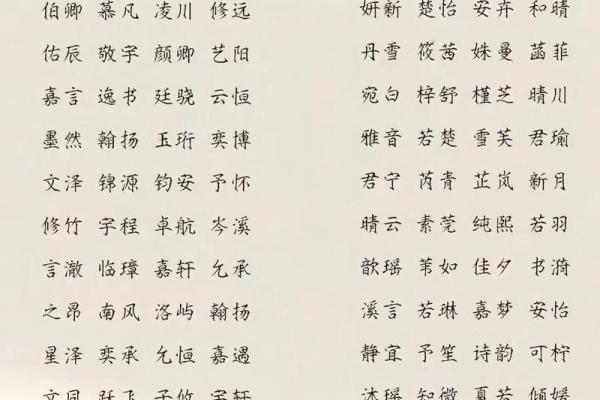 伯卿 慕凡 凌川 修远
佑辰 敬宇 颜卿 艺阳
嘉言 逸书 廷骁 云恒
墨然 翰扬 玉珩 奕博
文泽 锦源 钧安 予怀
修竹 宇程 卓航 岑溪
言澈 临璋 嘉轩 允承
之昂 南风 洛屿 翰扬
星泽 奕承 允恒 嘉遇
妍新 楚怡 安卉 和晴
丹雪 筱茜 姝曼 菡菲
宛白 梓舒 槿芝 晴川
雅音 若楚 雪芙 君瑜
君宁 芮青 芷岚 新月
晴云 素莞 纯熙 若羽
歆瑶 苇如 佳夕 书漪
溪言 若琳 嘉梦 安怡
静宜 予笙 诗韵 可柠
沐瑶 知微 夏若 倾媛